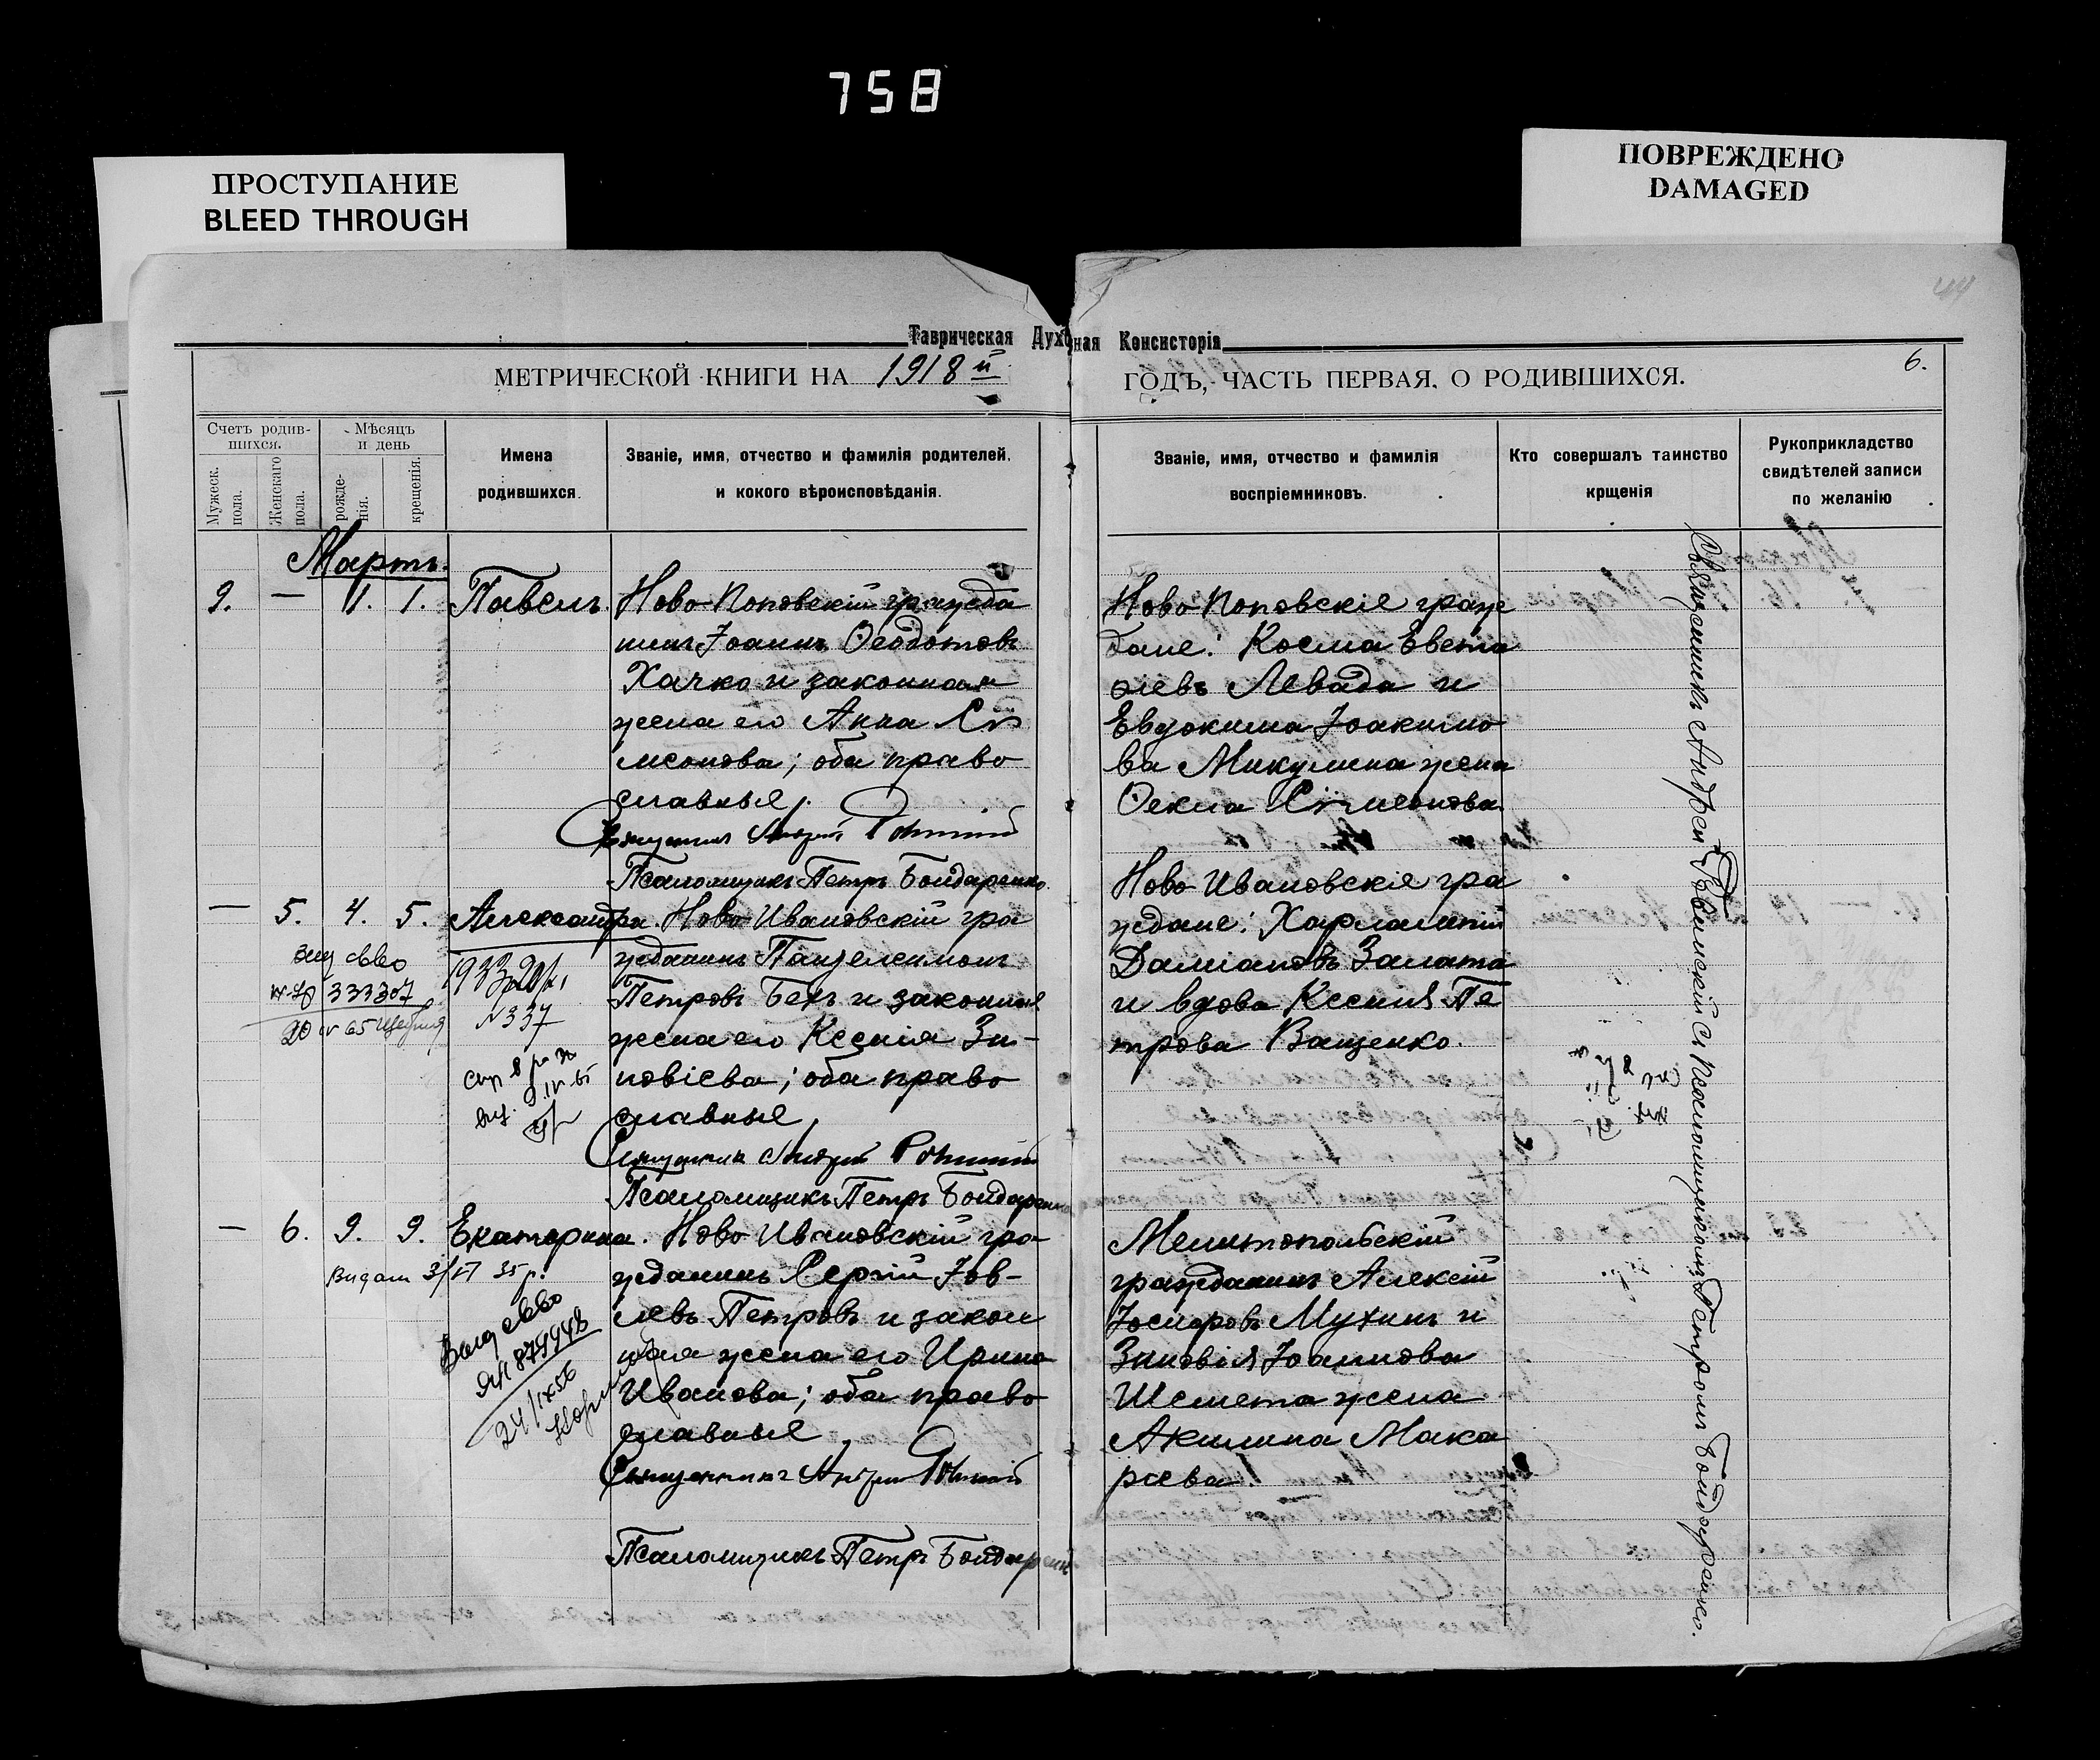 758
ПРОСТУПАНИЕ
BLEED THROUGH
ПОВРЕЖДЕНО
DAMAGED
44
Таврическая Духовная Консисторія
МЕТРИЧЕСКОЙ КНИГИ НА 1918й ГОДЪ, ЧАСТЬ ПЕРВАЯ, О РОДИВШИХСЯ.
6.
Счетъ родив-
шихся.
Мужеск.
пола.
Женскаго
пола.
Мѣсяцъ
и день
рожде-
нія.
крещенія.
Имена
родившихся.
Званіе, имя, отчество и фамилія родителей,
и кокого вѣроисповѣданія.
Званіе, имя, отчество и фамилія
воспріемниковъ.
Кто совершалъ таинство
крщенія
Рукоприкладство
свидѣтелей записи
по желанію
Мартъ.
9. — 1. 1. Павелъ.
Ново-Поповскій гражда
нинъ Іоаннъ Ѳеодотовъ
Хачко и законная
жена его Анна Сѵ
меонова; оба право
славные.
Священникъ Андрей
Псаломщикъ Петръ Бондаренко
Ново-Поповскіе граж
дане: Косма Евста
Левада и
Евдокима Іоакимо
ва Микулина жена
Ѳекла Сѵмеонова
— 5. 4. 5. Александра.
Ново-Ивановскій гра
жданинъ Пантелеимонъ
Петровъ Бехъ и законная
жена его Ксенія Зи-
новіева; оба право
славные
Священникъ Андрей
Псаломщикъ Петръ Бондаренко
выд св-во
333307
1933
N 337
Ново-Ивановскіе гра
ждане: Харлампій
Даміановъ Залата
и вдова Ксенія Пе
трова Ващенко.
— 6. 9. 9. Екатерина.
Ново-Ивановскій гра-
жданинъ Сергій Іов-
левъ Петровъ и закон
ная жена его Ирина
Иванова; оба право
славные
Священникъ Андрей
Псаломщикъ Петръ Бондаренко
Видали 3/VI 35 р.
Выд св-во
874994
24/IX 56
Мелитопольскій
гражданинъ Алексій
Іосифовъ Мухинъ и
Зиновія Іоаннова
Шемета жена
Акилина Мака
риева.
Священникъ Андрей съ Псаломщикомъ Петромъ Бондаренко.